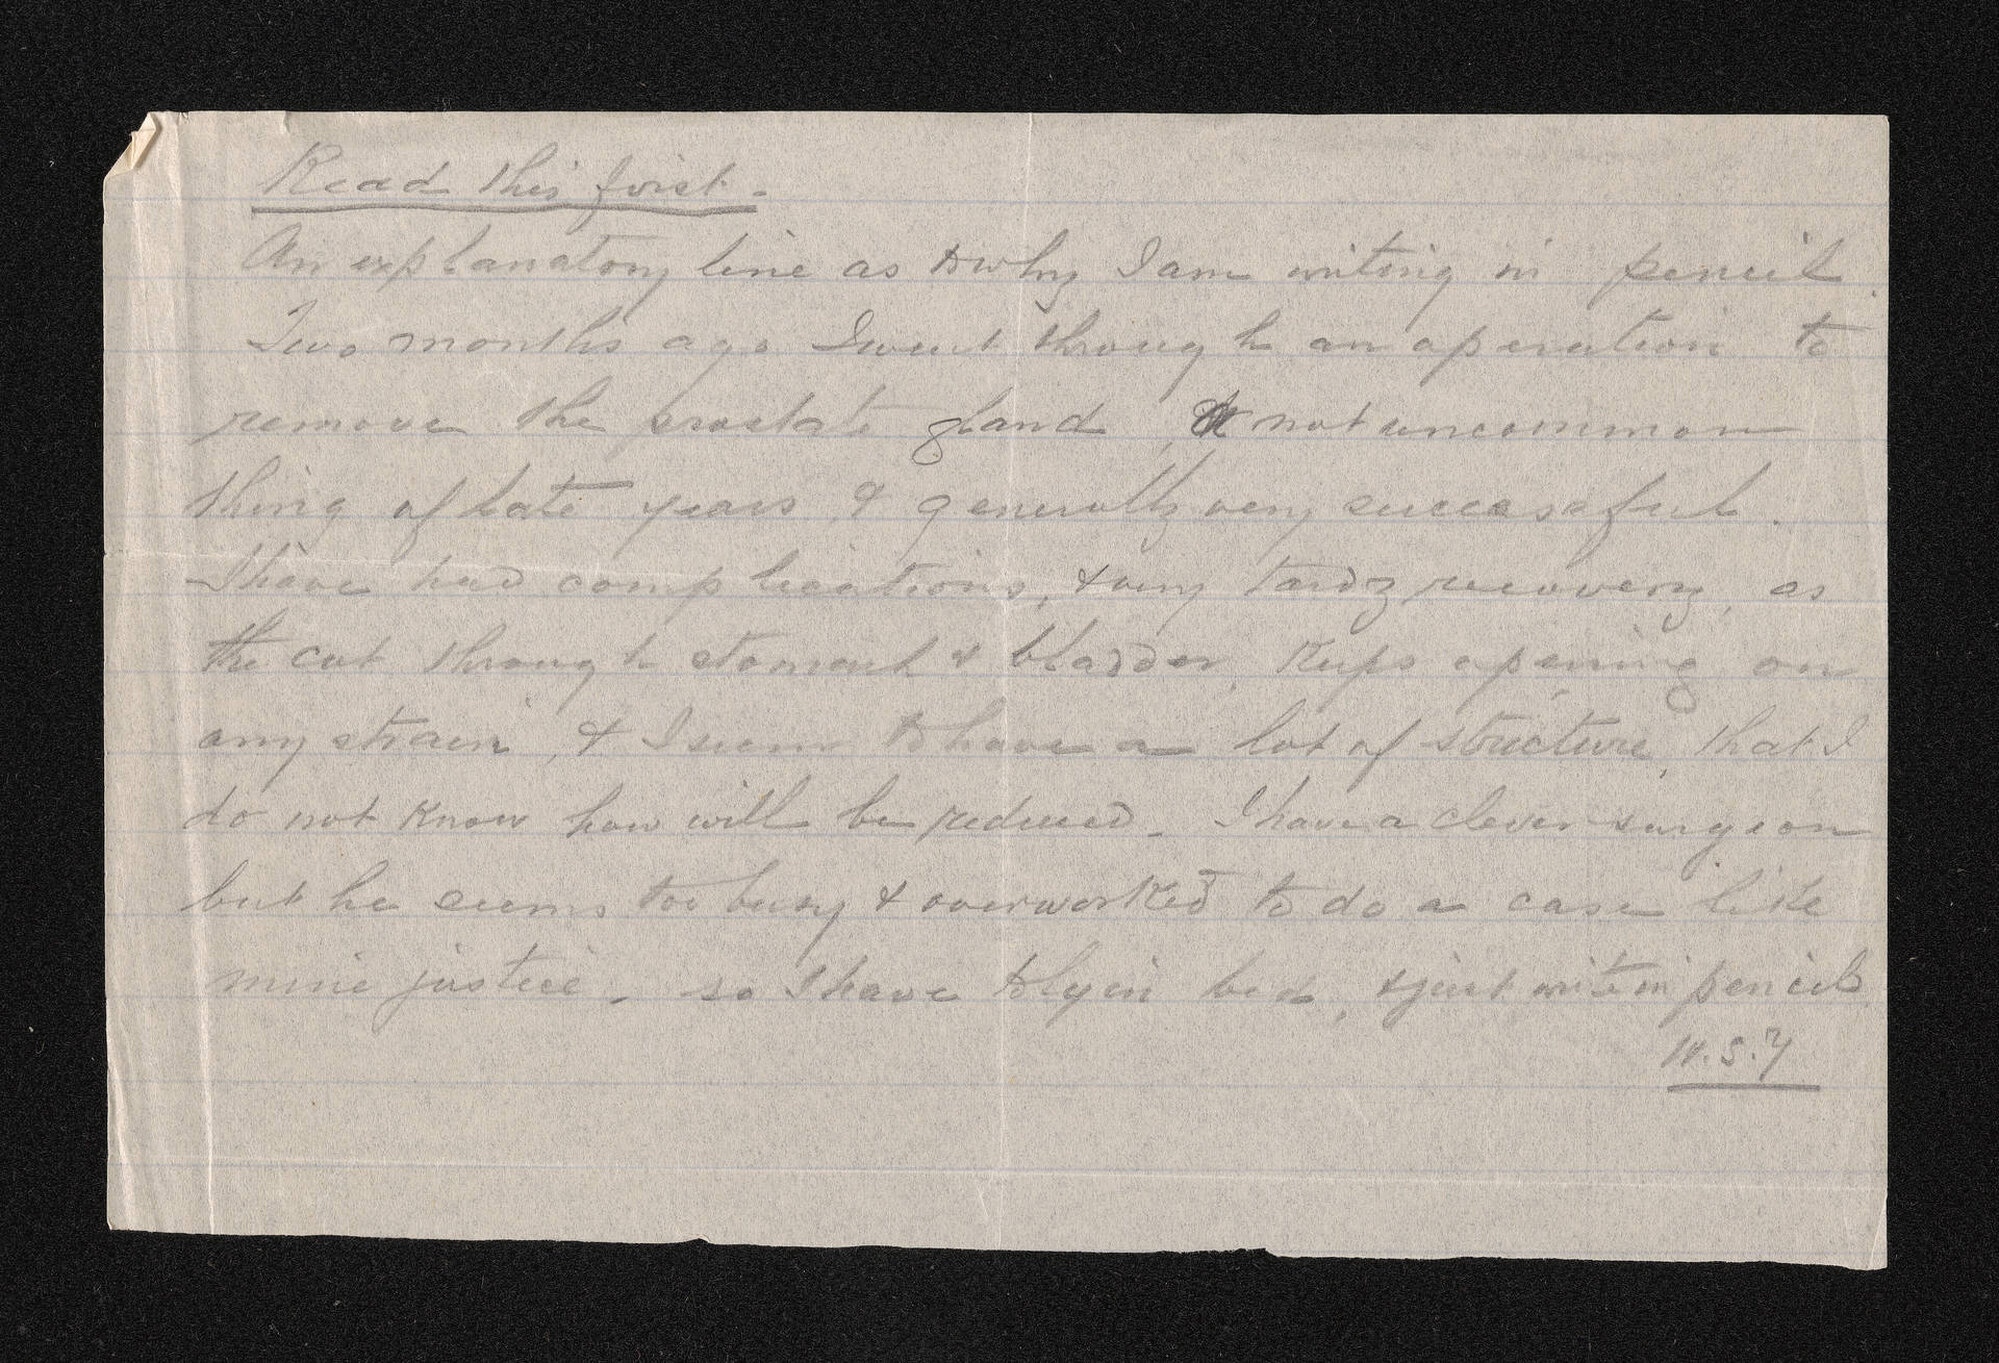 Read this first.
An explanatory line as to why I am writing in pencil.
Two months ago I went through an operation to
remove the prostate gland, a not uncommon
thing of late years, & generally very successful.
I have had complications, & very tardy recovery, as
the cut through stomach & bladder, keeps opening on
any strain, & I seem to have a lot of structure, that I
do not know how will be reduced. I have a clever surgeon
but he seems too busy & overworked to do a case like
mine justice. so I have to ly in bed, & just write in pencil
H.S.Y